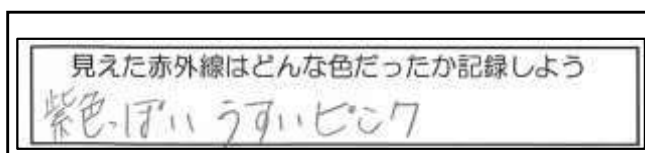 見えた赤外線はどんな色だったか記録しよう
紫色っぽい うすいピンク